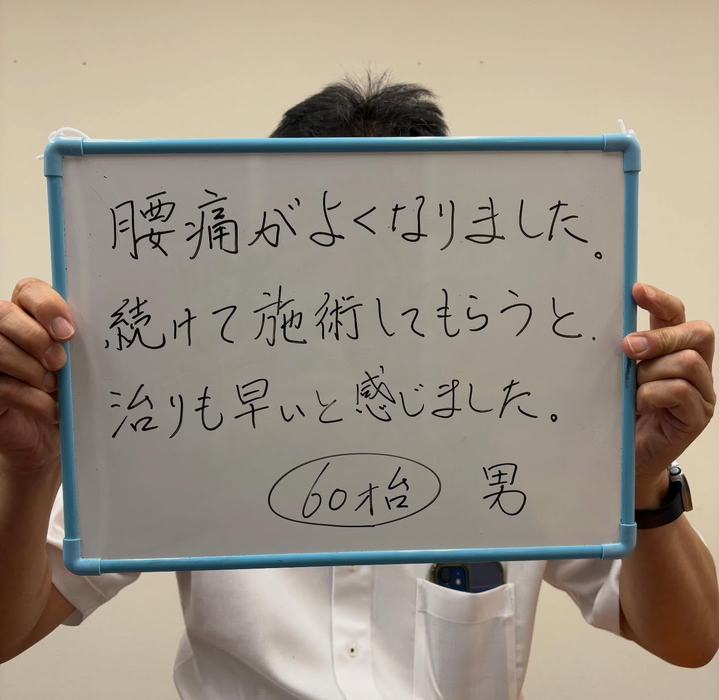 腰痛がよくなりました。
続けて施術してもらうと、
治りも早いと感じました。
60才台 男